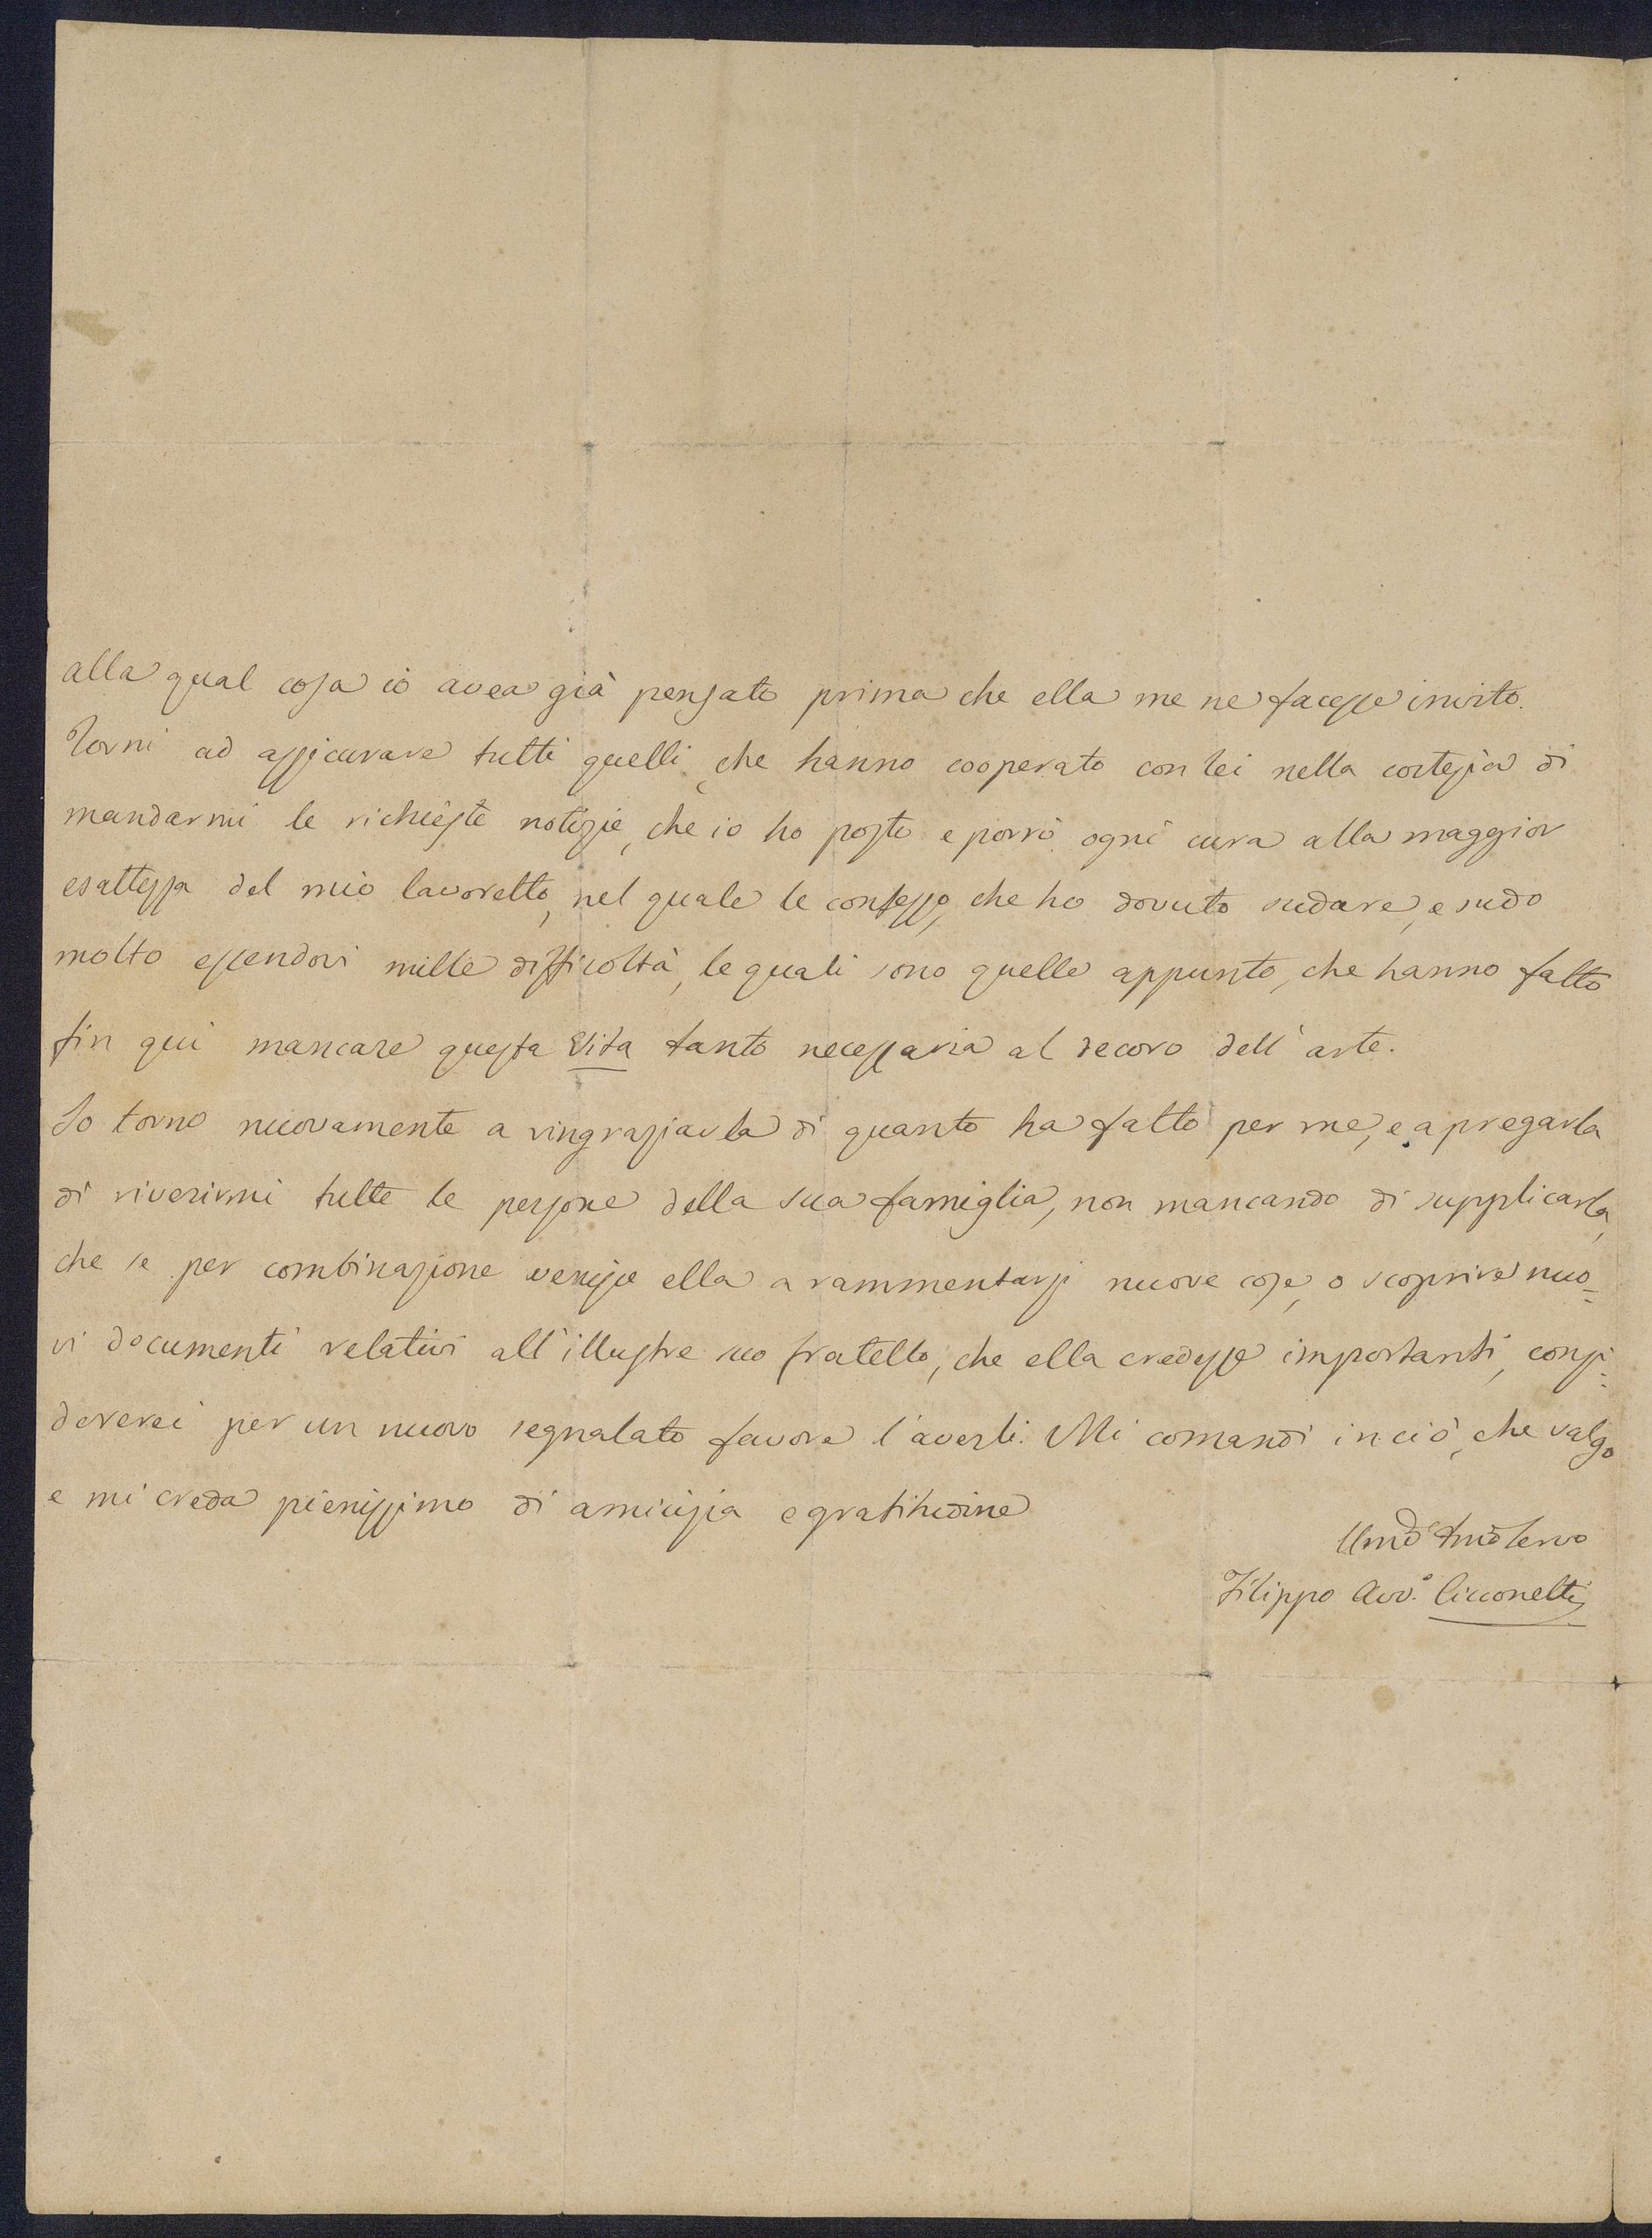 alla qual cosa io avea già pensato prima che ella me ne facesse invito.
Torni ad assicurare tutti quelli, che hanno cooperato con lei nella cortesia di
mandarmi le richieste notizie, che io ho posto e porrò ogni cura alla maggior
esattezza del mio lavoretto, nel quale le confesso, che ho dovuto sudare, e sudo
molto essendovi mille difficoltà, le quali sono quelle appunto, che hanno fatto
fin qui mancare questa Vita tanto necessaria al decoro dell'arte.
Io torno nuovamente a ringraziarla di quanto ha fatto per me, e a pregarla
di riverirmi tutte le persone della sua famiglia, non mancando di supplicarla,
che se per combinazione venisse ella a rammentarsi nuove cose, o scoprire nuo=
vi documenti relativi all'illustre suo fratello, che ella credesse importanti, consi=
dererei per un nuovo segnalato favore l'averli. Mi comandi in ciò, che valgo
e mi creda pienissimo di amicizia e gratitudine
Servo
Filippo Avv.º Cicconetti